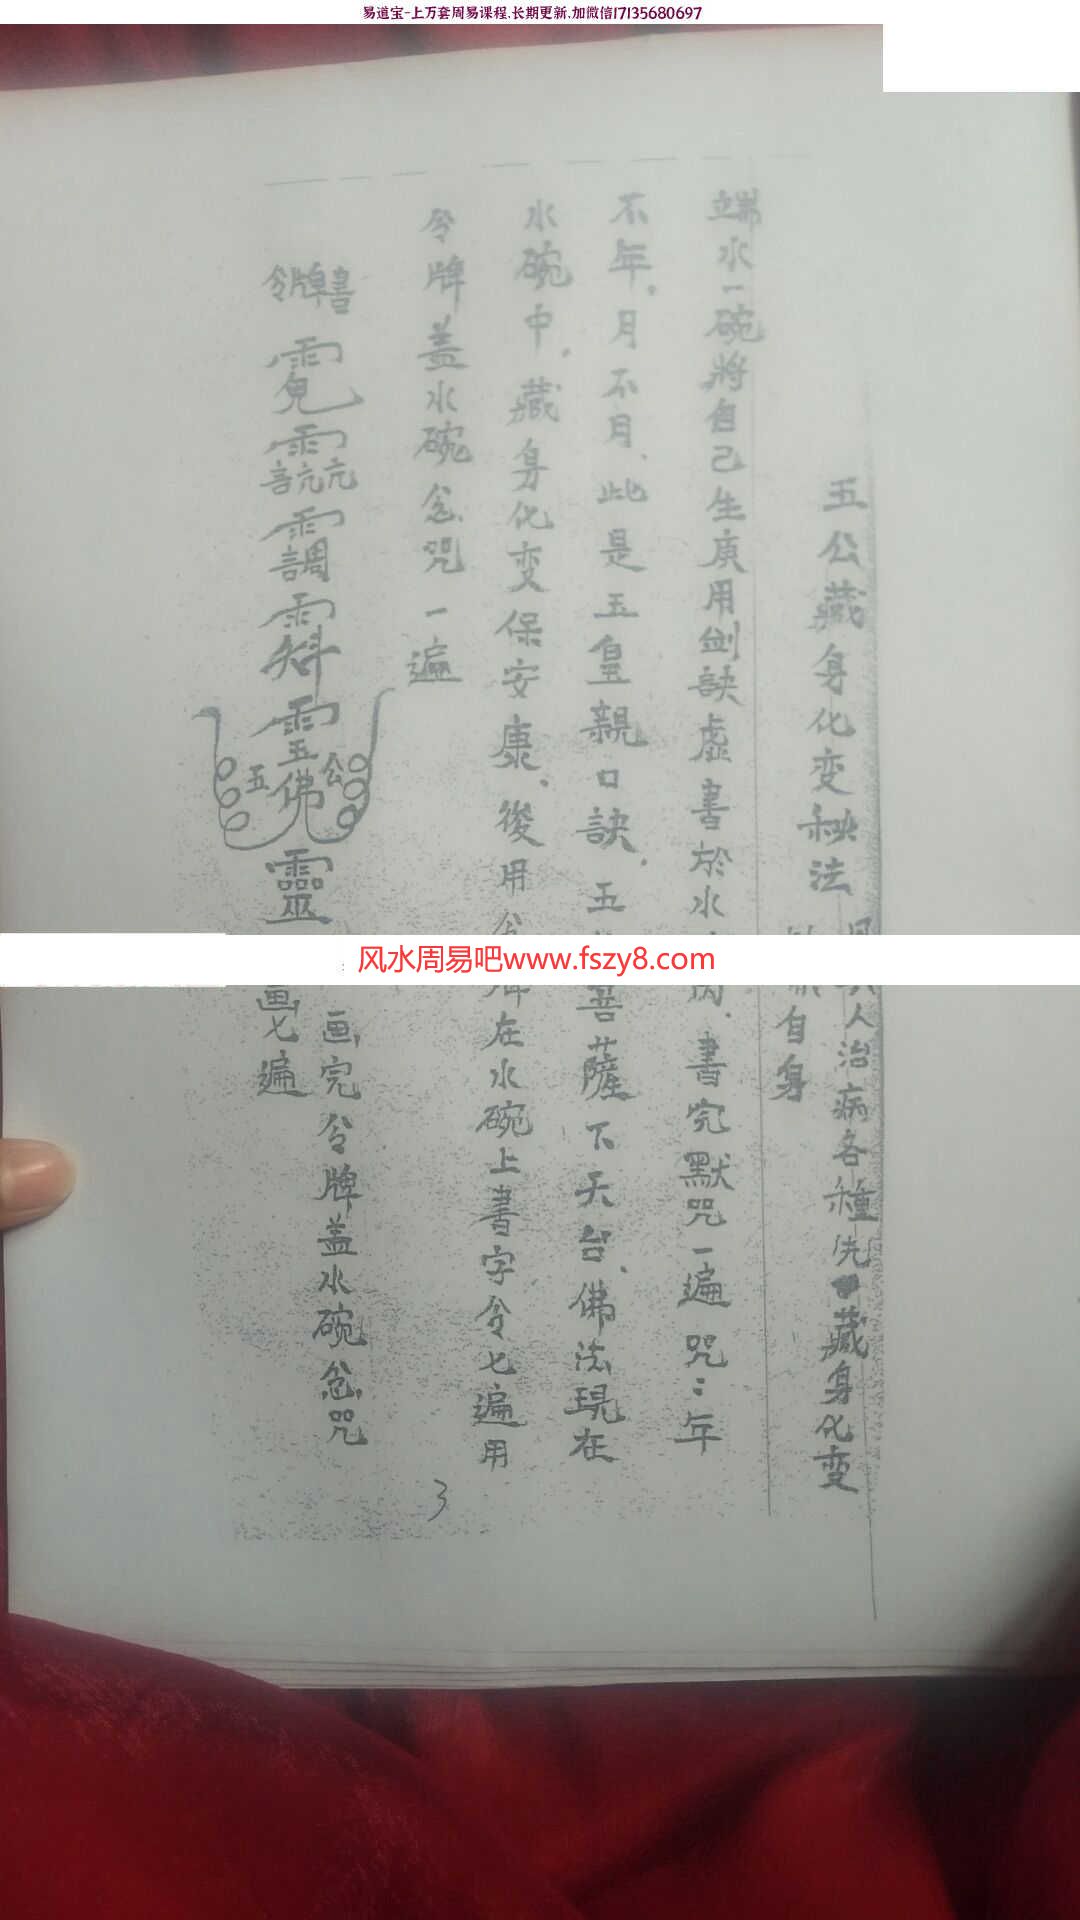 易道宝-上万套周易课程,长期更新,加微信17135680697
五公藏身化变秘法
人治病各種 藏身化变
自身
端水一碗將自己生庚用劍訣虛書於水 書完默咒一遍 咒:年
不年,月不月、此是五皇親口訣,五 菩薩下天台、佛法現在
水碗中,藏身化变保安康、後用 牌在水碗上書字令七遍用
令牌盖水碗念咒一遍
令牌書
靈
五佛公
靈
画完令牌盖水碗念咒
画七遍
风水周易吧www.fszy8.com
3